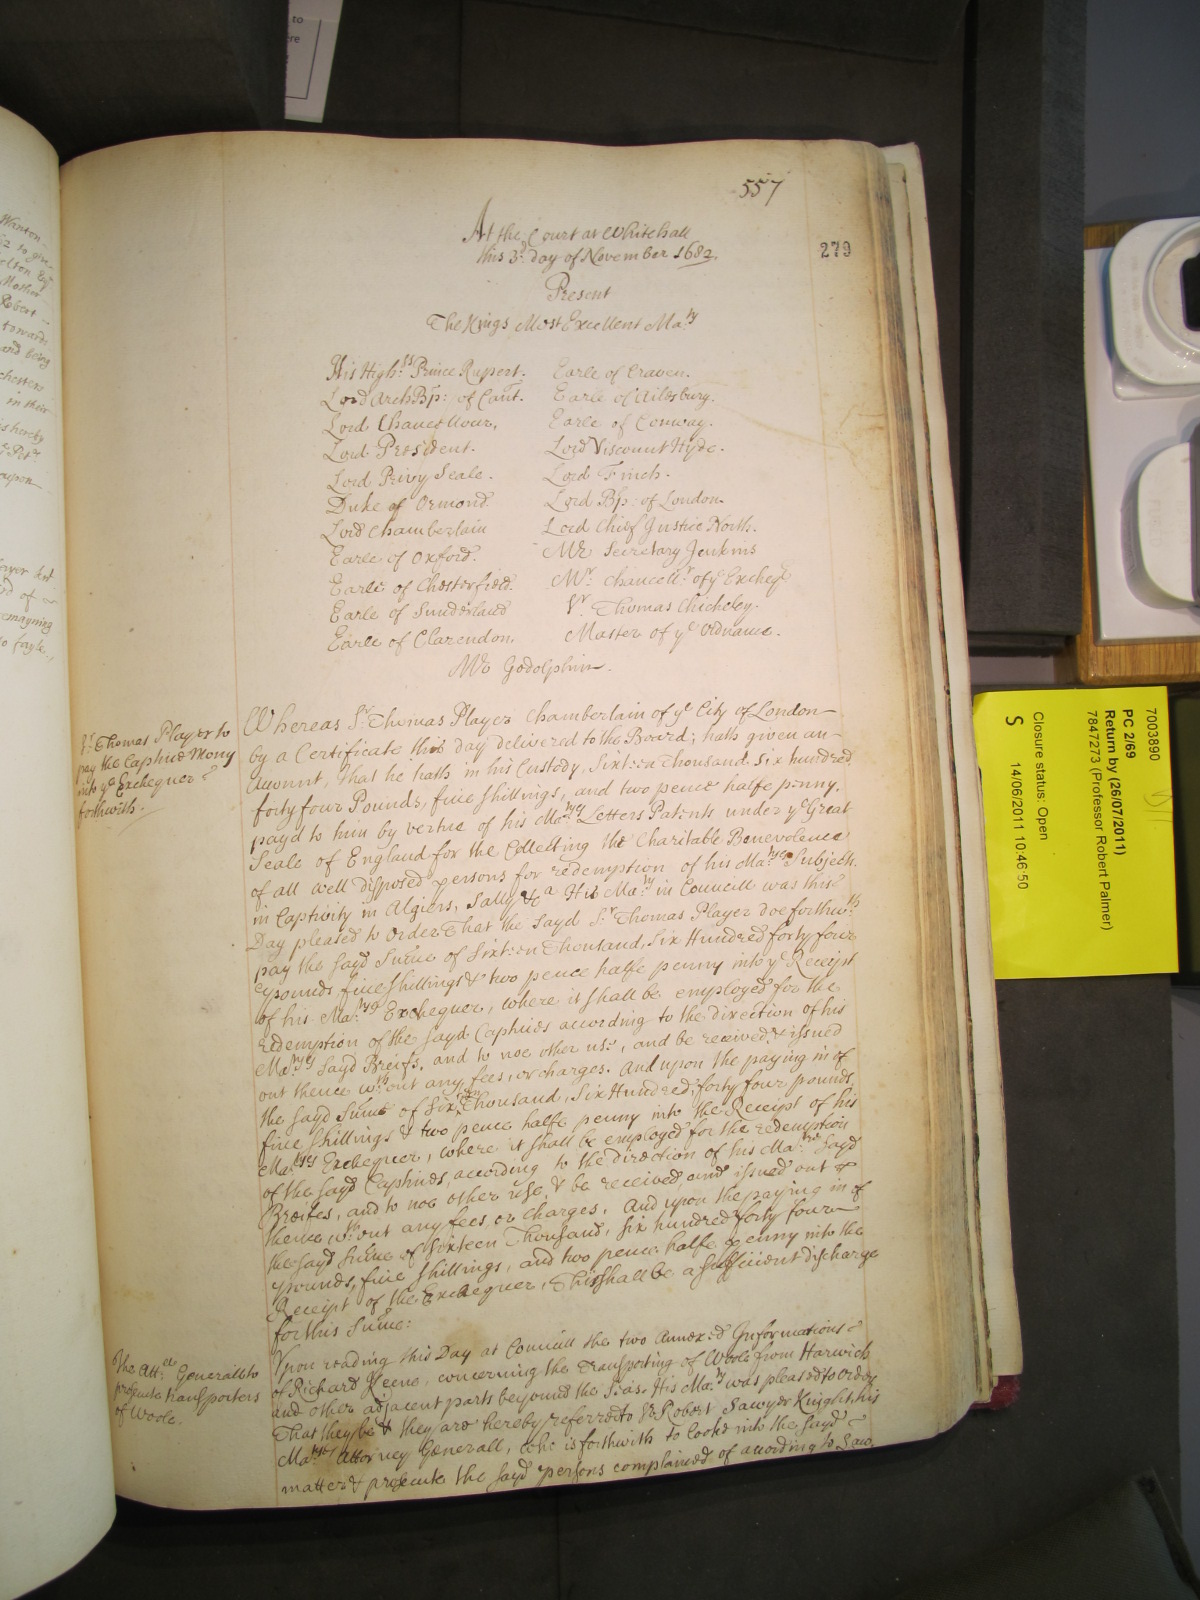 557
279
At the Court at Whitehall
this 3d. day of November 1682.
Present
The Kings Most Excellent Ma:ty
His High:ss Prince Rupert.
Lord ArchBp: of Cant.
Lord Chancellour,
Lord President.
Lord Privy Seale.
Duke of Ormond.
Lord Chamberlain
Earle of Oxford.
Earle of Chesterfield.
Earle of Sunderland
Earle of Clarendon.
Earle of Craven.
Earle of Ailesburg.
Earle of Conway.
Lord Viscount Hyde.
Lord Finch.
Lord Bp: of London.
Lord Chief Justice North.
Mr Secretary Jenkins
Mr. Chancellr. of ye Excheqr
Sr. Thomas Chicheley.
Master of ye Ordnance.
Mr Godolphin.
Sr. Thomas Player to
pay the Captive Mony
into ye Exchequer
forthwith.
Whereas Sr. Thomas Player Chamberlain of ye City of London
by a Certificate this day delivered to the Board; hath given an
Account, That he hath in his Custody, Sixteen Thousand six hundred
forty four Pounds, five shillings, and two pence halfe penny.
payd to him by vertue of his Ma:tyes Letters Patents under ye Great
Seale of England for the Collecting the Charitable Benevolence
of all well disposed persons for redemption of his Ma:tyes Subjects
in Captivity in Algiers, Sally &ca His Ma:ty in Councill was this
Day pleased to Order That the Sayd Sr. Thomas Player doe forthwth
pay the Sayd Sume of Sixteen Thousand, Six Hundred forty four
pounds five shillings & two pence halfe penny into ye Receipt
of his Ma:tyes Exchequer, where it shall be employed for the
redemption of the Sayd Captives according to the direction of his
Matyes Sayd Breifs, and to noe other use, and be received & issued
out thence wthout any fees, or charges. And upon the paying in of
the Sayd Sume of Sixteen Thousand, Six Hundred, forty four pounds,
five shillings & two pence halfe penny into the Receipt of his
Matyes Exchequer, where it shall be employed for the redemption
of the Sayd Captives, according to the direction of his Ma:tyes Sayd
Breifes, and to noe other use, & be received, and issued out
thence wthout any fees, or charges. And upon the paying in of
the Sayd Sume of Sixteen Thousand, six hundred forty four
pounds, five shillings, and two pence halfe penny into the
Receipt of the Exchequer, This shall be a sufficient discharge
for this Sume:
The Att. Generall to
prosecute transporters
of Woole.
Upon reading this Day at Councill the two Annexed Informations
of Richard Keene, concerning the Transporting of Woole from Harwich
and other adjacent parts beyond the Seas. His Ma:ty was pleased to Order
That they be & they are hereby referred to Sr Robert Sawyer Knight, his
Matyes Attorney Generall, who is forthwith to looke into the Sayd
matter & prosecute the Sayd persons complained of according to Law.
7003890
PC 2/69
Return by (26/07/2011)
7847273 (Professor Robert Palmer)
Closure status: Open
S
14/06/2011 10:46:50